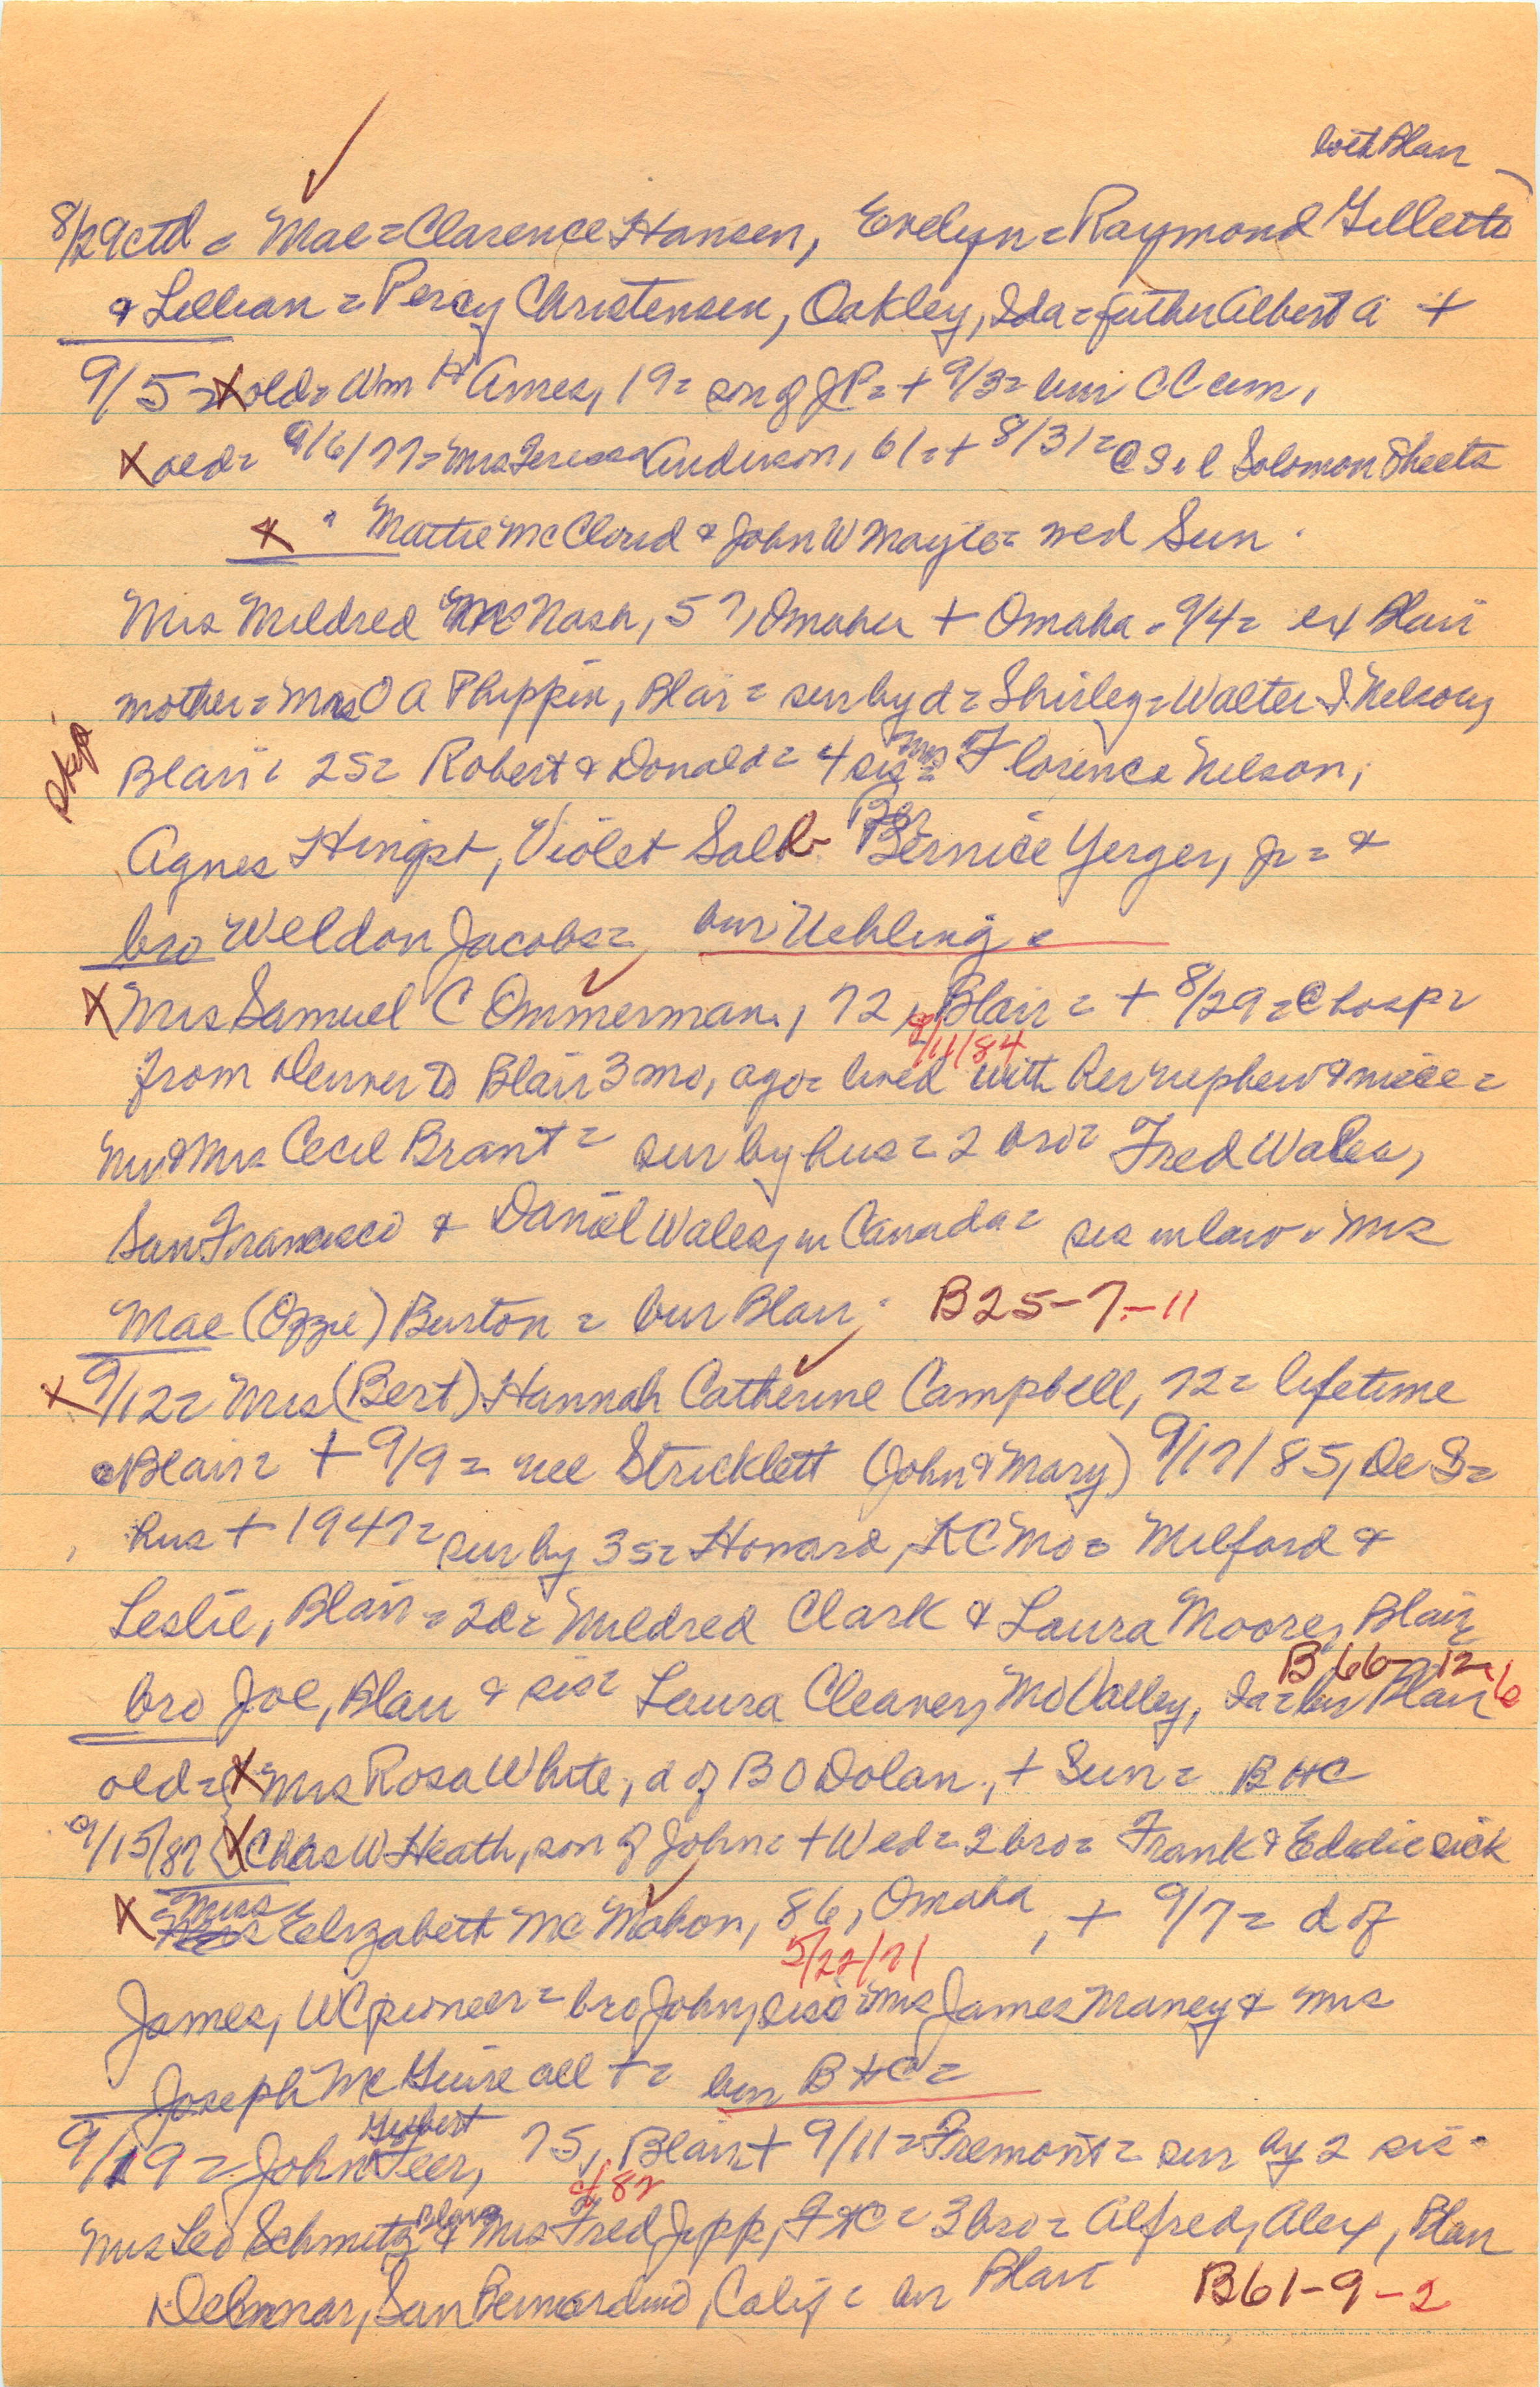 both Blair
8/29 ctd = Mae = Clarence Hansen, Evelyn = Raymond Gillette
& Lillian = Percy Christensen, Oakley, Ida = father Albert A +
9/5 = X old = Wm H Ames, 19 = son of J P = + 9/3 = bur C C cem,
X old = 9/6/77 = Mrs Teressa Anderson, 61 = + 8/31 = Solomon Sheets
X " Mattie McCloud & John W Mayle = wed Sun.
Mrs Mildred Nash, 57, Omaha + Omaha = 9/4 = ex Blair
mother = Mrs O A Phippin, Blair = sur by d = Shirley = Walter S Nelson,
Skip
Blair = 2s = Robert & Donald = 4 sis = Mrs Florence Nelson,
Agnes Hingst, Violet Bernice Yerger, Jr = &
bro Weldon Jacobs = bur Uehling =
X Mrs Samuel C Ommerman, 72, Blair = + 8/29 = C hosp =
9/11/84
from Denver to Blair 3 mo, ago = lived with her nephew & niece =
Mr & Mrs Cecil Brant = sur by hus = 2 bro = Fred Wales,
San Francisco & Daniel Wales, in Canada = sis in law = Mrs
Mae (Ozzie) Burton = bur Blair, B25-7-11
X 9/12 = Mrs (Bert) Hannah Catherine Campbell, 72 = lifetime
Blair = + 9/9 = nee Stricklett (John & Mary) 9/17/85, De S =
hus + 1947 = sur by 3s = Howard, KC Mo = Milford &
Leslie, Blair = 2d = Mildred Clark & Laura Moore, Blair
B66-12-6
bro Joe, Blair & sis = Laura Cleaver, Mo Valley, Ia = bur Blair
old = X Mrs Rosa White, d of B O Dolan, + Sun = B HC
9/15/87 X Chas W Heath, son of John = + Wed = 2 bro = Frank & Eddie sick
X Miss Elizabeth McMahon, 86, Omaha, + 9/7 = d of
5/22/71
James, WC pioneer = bro John, sis = Mrs James Maney & Mrs
Joseph McGuire all + = bur B HC =
9/19 = John Gilbert Feer, 75, Blair + 9/11 = Fremont = sur by 2 sis =
Mrs Leo Schmitz Blair & Mrs Fred Jipp, Ft C = 3 bro = Alfred, Alex, Blair
Delmar, San Bernardino, Calif = bur Blair B61-9-2